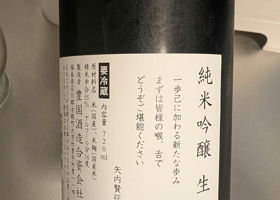 純米吟醸 生
一歩己に加わる新たな歩み
まずは皆様の喉、舌で
どうぞご堪能ください
矢内賢征
要冷蔵
内容量 720ml
原材料名 米(国産)、米麹(国産米)
精米歩合55% アルコール分16度
製造者 豊国酒造合資会社